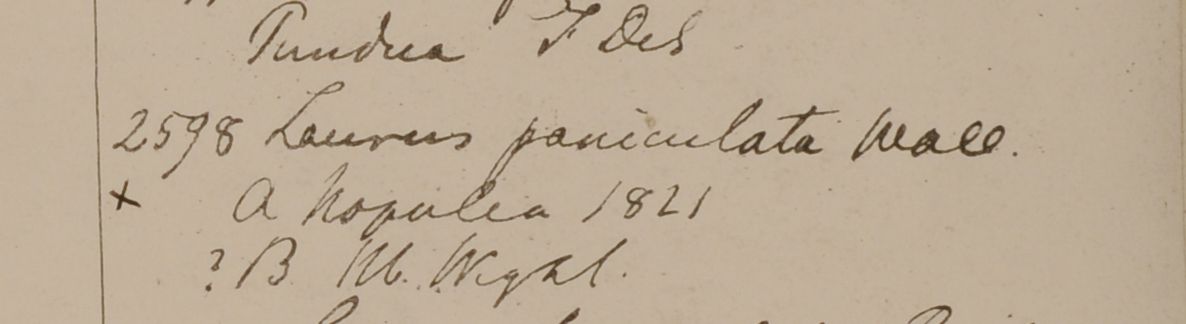 Pundua F Des
2598 Laurus paniculata Wall.
+ A Nopalea 1821
? B Hb. Wight.